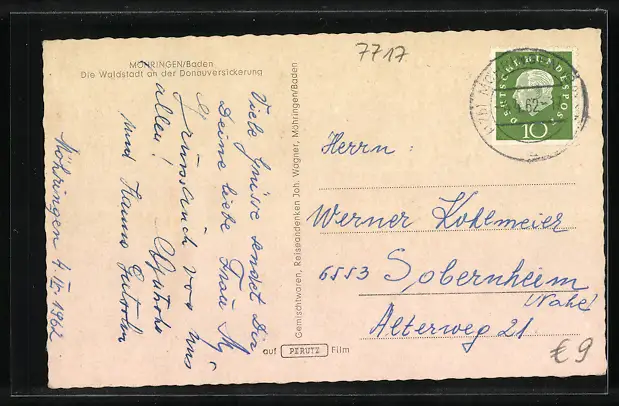 7717
MÖHRINGEN/Baden
Die Waldstadt an der Donauversickerung
DEUTSCHE BUNDESPOST
10
62
Herrn:
Werner Kohlmeier
6553 Sobernheim
(Nahe)
Alterweg 21
€ 9
auf PERUTZ Film
Gemischtwaren, Reiseandenken Joh. Wagner, Möhringen/Baden
Viele Grüsse sendet Dir
Deine liebe Frau
Gruss auch von uns
allen!
und Hanna
Möhringen 4. 1962